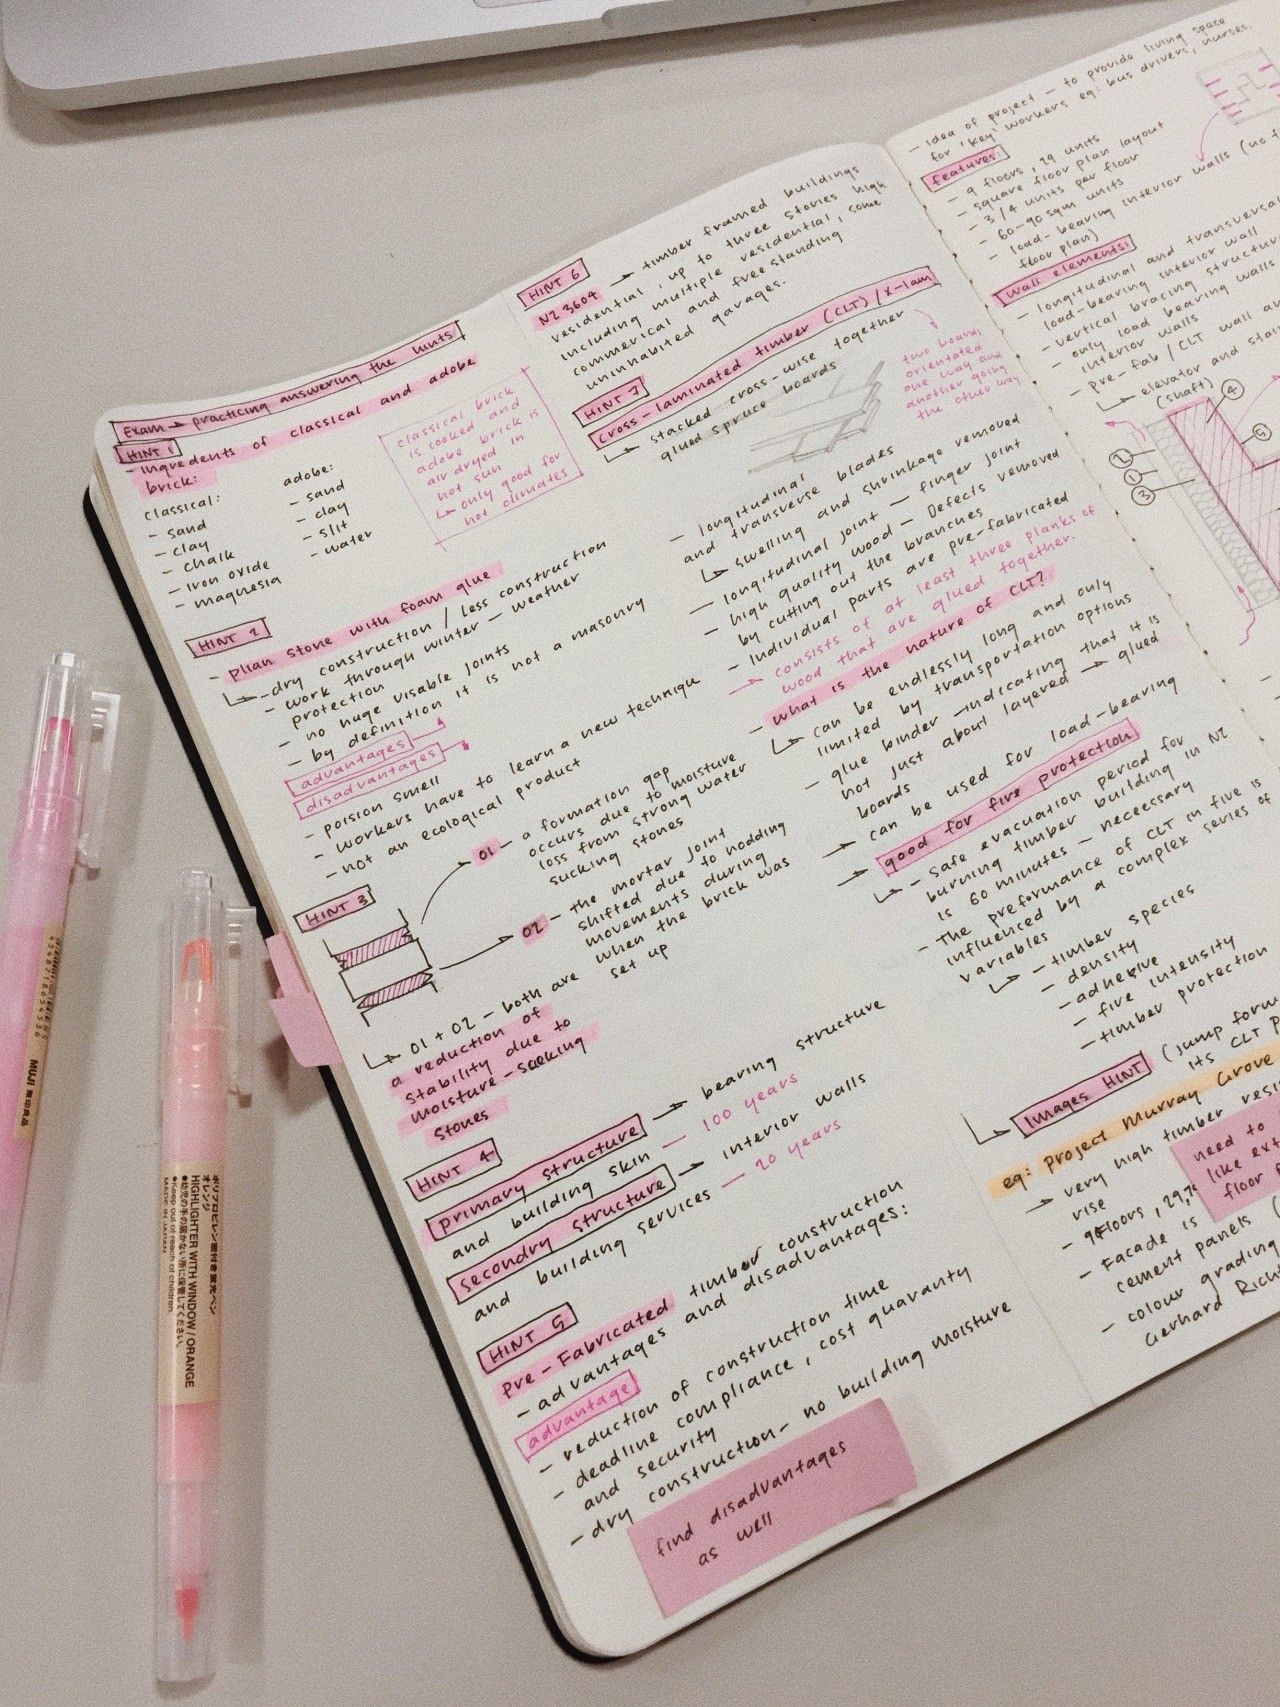 Exam → practicing answering the hints
HINT 1
- ingredents of classical and adobe
brick:
classical:
- sand
- clay
- chalk
- iron oxide
- magnesia
adobe:
- sand
- clay
- slit
- water
classical brick
is cooked and
adobe brick is
air dryed in
hot sun
↳ only good for
hot climates
HINT 2
- plian stone with foam glue
↳ - dry construction / less construction
- work through winter - weather
protection
- no huge visable joints
- by definition it is not a masonry
advantages
disadvantages
- poision smell
- workers have to learn a new techniqu
- not an ecological product
HINT 3
01 - a formation gap
occurs due to moisture
loss from strong water
sucking stones
02 - the mortar joint
shifted due to nodding
movements during
when the brick was
set up
↳ 01 + 02 - both are
a reduction of
stability due to
moisture-soaking
stones
HINT 4
primary structure → bearing structure
and building skin — 100 years
secondry structure → interior walls
and building services — 20 years
HINT 5
Pre-Fabricated timber construction
- advantages and disadvantages:
advantage
- reduction of construction time
- deadline compliance, cost guaranty
and security
- dry construction - no building moisture
find disadvantages
as well
HINT 6
NZ 3604 → timber framed buildings
residential, up to three stories high
including multiple residential, some
commerical and free standing
uninhabited garages.
HINT 7
cross-laminated timber (CLT) / X-lam
↳ stacked cross-wise together
glued spruce boards
two boards
orientated
one way and
another going
the other way
- longitudinal
and transverse blades
↳ swelling and shrinkage removed
- longitudinal joint - finger joint
- high quality wood - Defects removed
by cutting out the branches
- Individual parts are pre-fabricated
→ consists of at least three planks of
wood that are glued together.
- what is the nature of CLT?
↳ can be endlessly long and only
limited by transportation options
- glue binder - indicating that it is
not just about layered → glued
boards
→ can be used for load-bearing
→ good for fire protection
↳ - safe evacuation period for
burning timber building in NZ
is 60 minutes - necessary
- The preformance of CLT in fire is
influenced by a complex series of
variables
↳ - timber species
- density
- adhesive
- fire intensity
- timber protection
↳ Images HINT (jump form
its CLT P
eg: project Murray Grove
→ very high timber resi
rise
- 9 floors, 29,
- Facade is
cement panels (
- colour grading
Gerhard Rich
need to
like ext
floor
- idea of project - to provide living space
for 'key' workers eg: bus drivers, nurses.
features:
- 9 floors, 29 units
- square floor plan layout
- 3/4 units per floor
- 60-90 sqm units
- load-bearing interior walls (no
floor plan)
wall elements:
- longitudinal and transversal
load-bearing interior wall
- vertical bracing structur
- only load bearing walls
interior walls
- pre-fab / CLT wall a
↳ elevator and sta
(shaft)
4
5
2
1
3
4547718654536
MUJI 無印良品
ポリプロピレン窓付き蛍光ペン
オレンジ
HIGHLIGHTER WITH WINDOW / ORANGE
●幼児の手の届かない所に保管してください。
●Keep out of reach of children.
MADE IN JAPAN